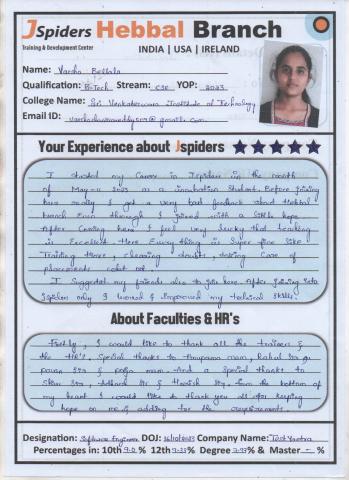 JSpiders Hebbal Branch
Training & Development Center
INDIA | USA | IRELAND
Name: Varsha Bellala
Qualification: B-Tech Stream: CSE YOP: 2023
College Name: Sri Venkateswara Institute of Technology
Email ID:
Your Experience about Jspiders
I started my Career in Jspiders in the month
of May 2023 as a incubation Student. Before joining
here really I got a very bad feedback about Hebbal
branch Even through I joined with a little hope
After Coming here I feel very lucky that teaching
is Excellent. Here Every thing is Super fine like
Training Hours, Clearing doubts, taking Care of
placements
I Suggested my friends also to join here. After joining into
Jspiders only I learned & Improved my technical Skills.
About Faculties & HR's
Firstly, I would like to thank all the trainers &
the HR's, Special thanks to Anupama mam, Rahul
Sir & pooja mam. And a Special thanks to
Sir & Harish Sir. From the bottom of
my heart I would like to thank you all for keeping
hope on me & adding for the requirements.
Designation: Software Engineer DOJ: Company Name: Test Yantra
Percentages in: 10th % 12th % Degree % & Master - %